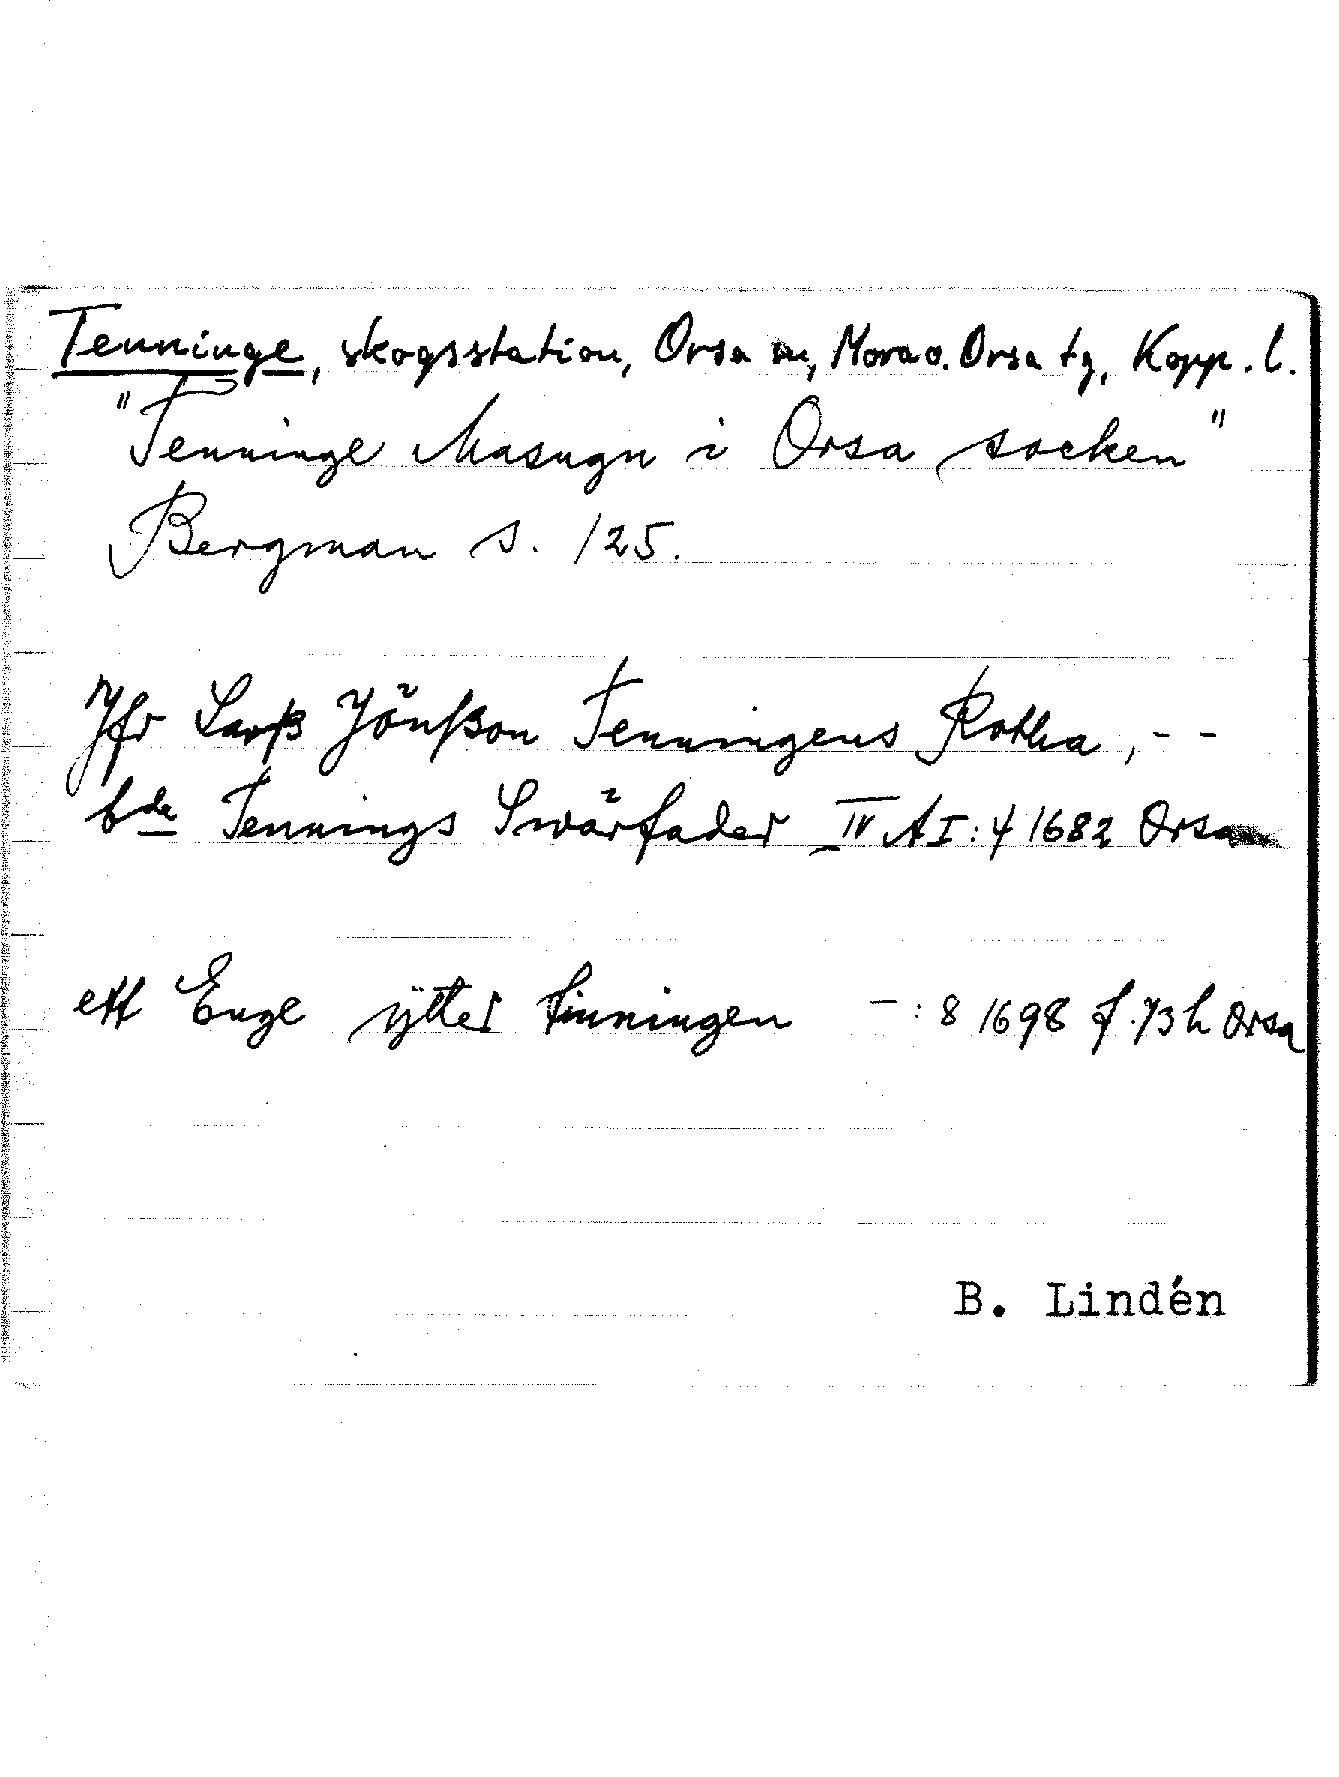 Tenninge, skogsstation, Orsa sn, Mora o. Orsa tg, Kopp. l.
"Tenninge Masugn i Orsa socken"
Bergman s. 125.
Jfr Larß Jönßon Tenningens Rotha, - -
bde Tennings Swärfader IV A I: 4 1682 Orsa
ett Enge ÿtter tinningen - : 8 1698 f. 73 h Orsa
B. Lindén